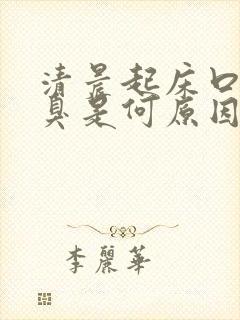 清晨起床口
臭是何原因
李麗華